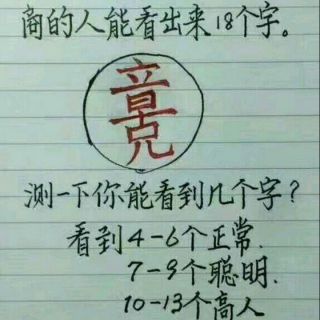 商的人能看出来18个字。
测一下你能看到几个字?
看到4-6个正常.
7-9个聪明.
10-13个高人